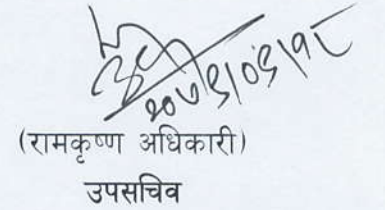 २०७९|०९|१८
(रामकृष्ण अधिकारी)
उपसचिव